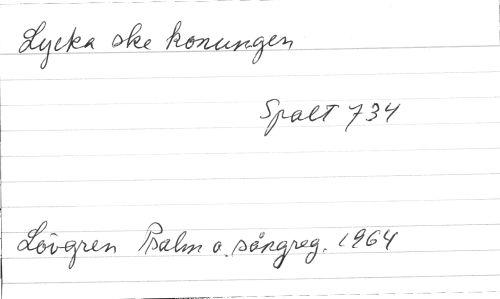 Lycka ske konungen
Spalt 734
Lövgren Psalm o. sångreg. 1964